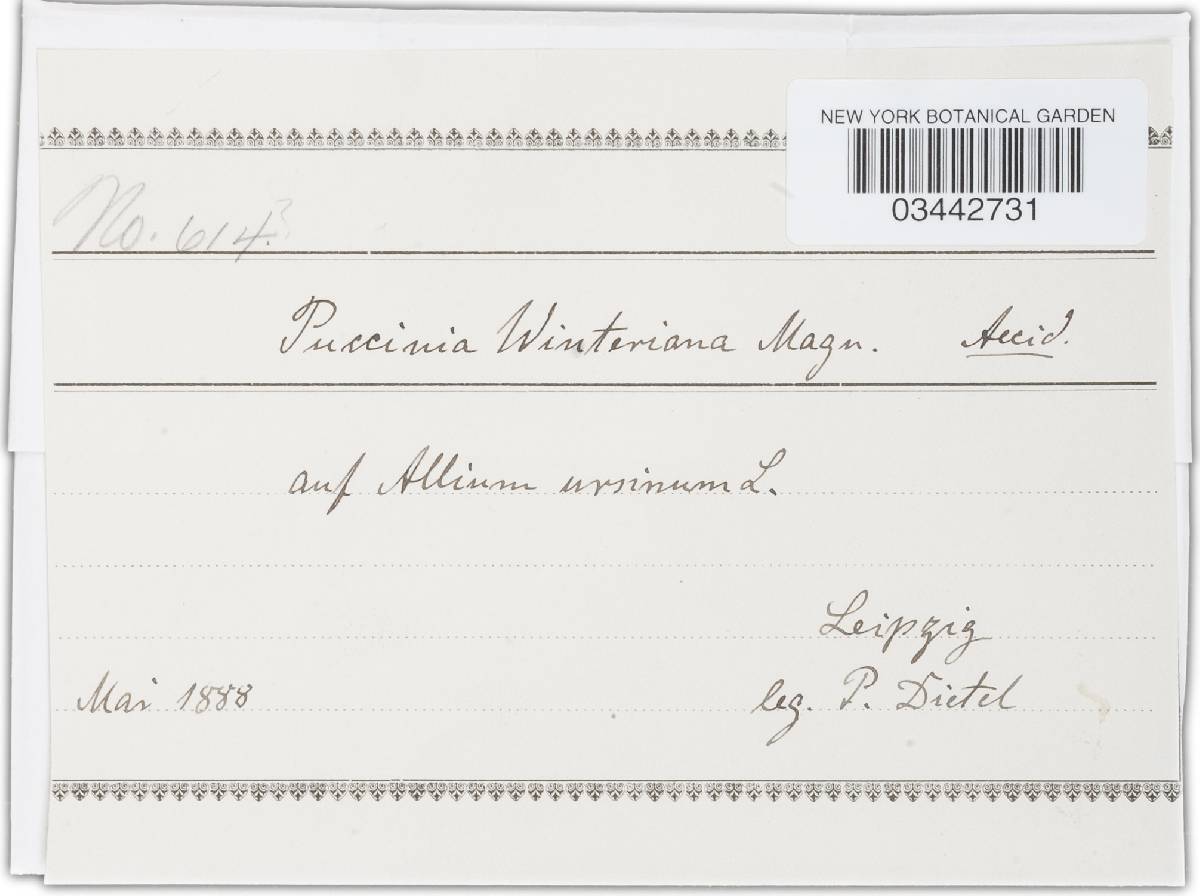 NEW YORK BOTANICAL GARDEN
03442731
No. 614?
Puccinia Winteriana Magn. Aecid.
auf Allium ursinum L.
Leipzig
Mai 1888 leg. P. Dietel